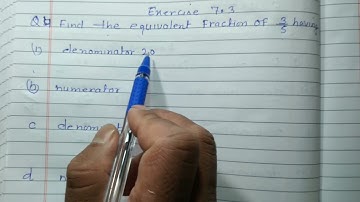 Exercise 7.3
Q4 Find the equivalent fraction of 3/5 having
(1) denominator 20
(b) numerator
c denomi
d n